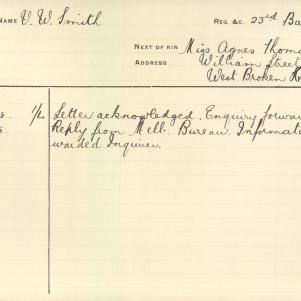 NAME V. W. Smith
REG &C. 23rd Ba
NEXT OF KIN Miss Agnes Thom
ADDRESS William Street
West Broken H
1/2 Letter acknowledged. Enquiry forwa
Reply from Melb. Bureau. Informat
warded Inquirer.